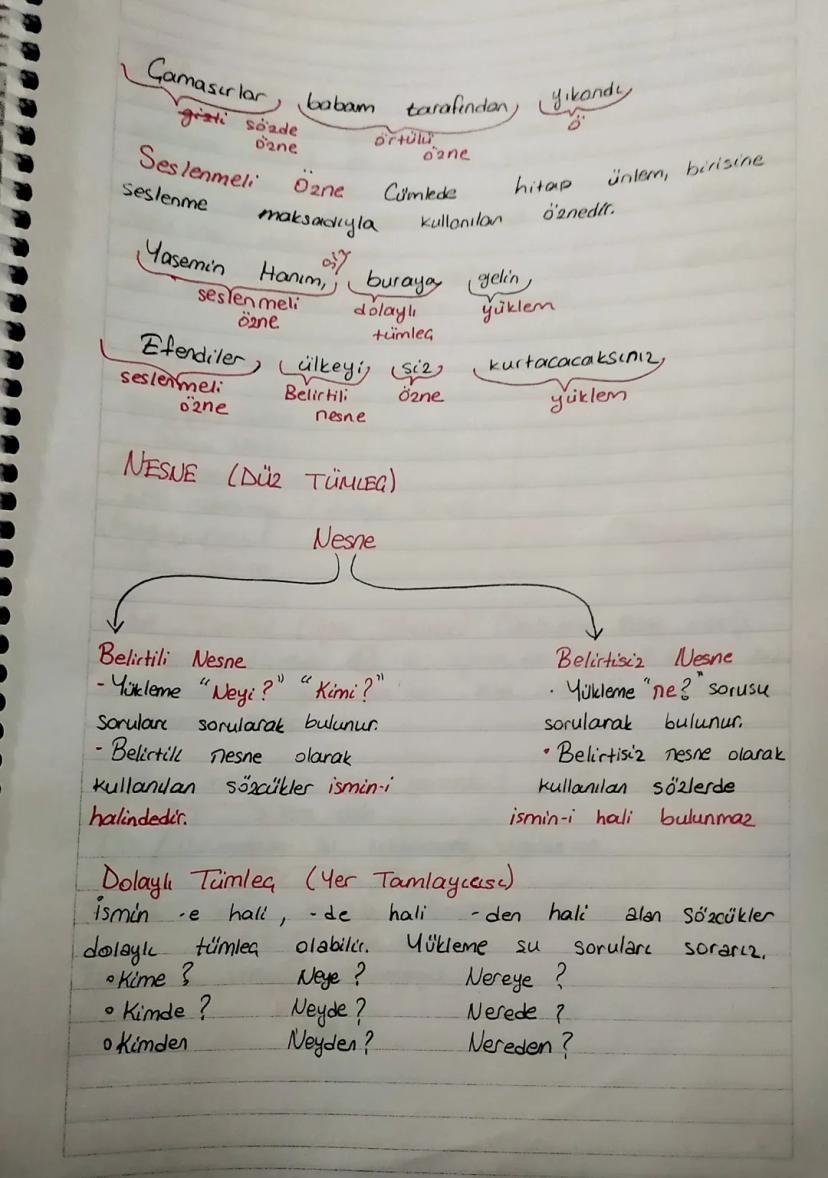 Çamaşırlar babam tarafından yıkandı
gizli sözde özne örtülü özne Ö
Seslenmeli Özne Cümlede hitap ünlem, birisine
seslenme maksadıyla kullanılan öznedir.
Yasemin Hanım, buraya gelin
seslenmeli özne dolaylı tümleç yüklem
Efendiler, ülkeyi siz kurtacacaksınız
seslenmeli özne Belirtili nesne özne yüklem
NESNE (DÜZ TÜMLEÇ)
Nesne
Belirtili Nesne Belirtisiz Nesne
- Yükleme "Neyi?" "Kimi?" · Yükleme "ne?" sorusu
soruları sorularak bulunur. sorularak bulunur.
- Belirtili nesne olarak • Belirtisiz nesne olarak
kullanılan sözcükler ismin-i kullanılan sözlerde
halindedir. ismin-i hali bulunmaz
Dolaylı Tümleç (Yer Tamlayıcısı)
İsmin -e hali, -de hali -den hali alan sözcükler
dolaylı tümleç olabilir. Yükleme şu soruları sorarız.
• Kime? Neye? Nereye?
• Kimde? Neyde? Nerede?
• Kimden Neyden? Nereden?